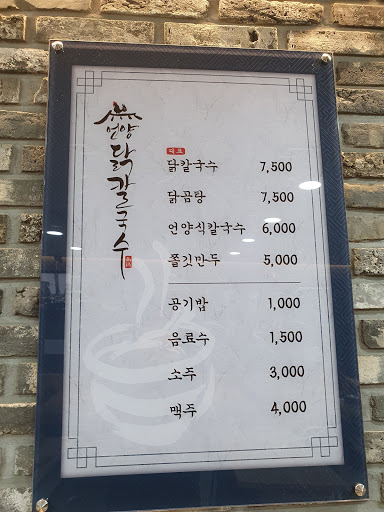 언양
닭칼국수
대표
닭칼국수 7,500
닭곰탕 7,500
언양식칼국수 6,000
쫄깃만두 5,000
공기밥 1,000
음료수 1,500
소주 3,000
맥주 4,000